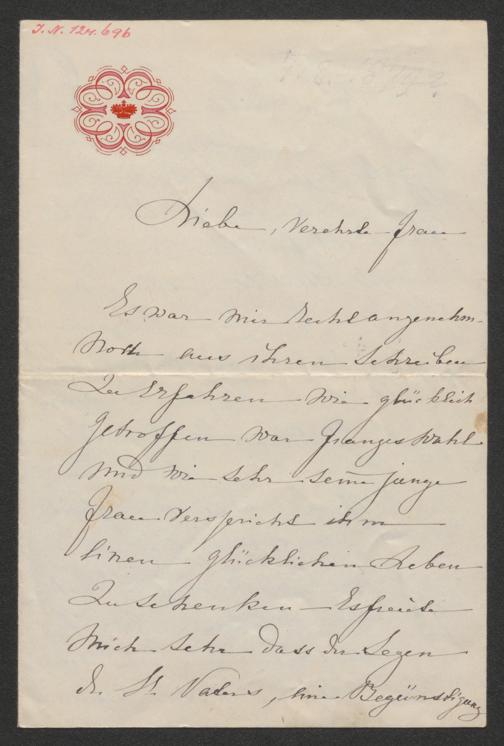 J. N. 124.696
Liebe, verehrte Frau
Es war mir recht angenehm
aus ihren Schreiben
Zu Erfahren wie glücklich
getroffen war Franzes Wahl
und wie sehr seine junge
Frau verspricht ihm
einen glücklichen Leben
Zu schenken – Es freute
Mich sehr dass der Segen
des St. Vaters, eine Begünstigung